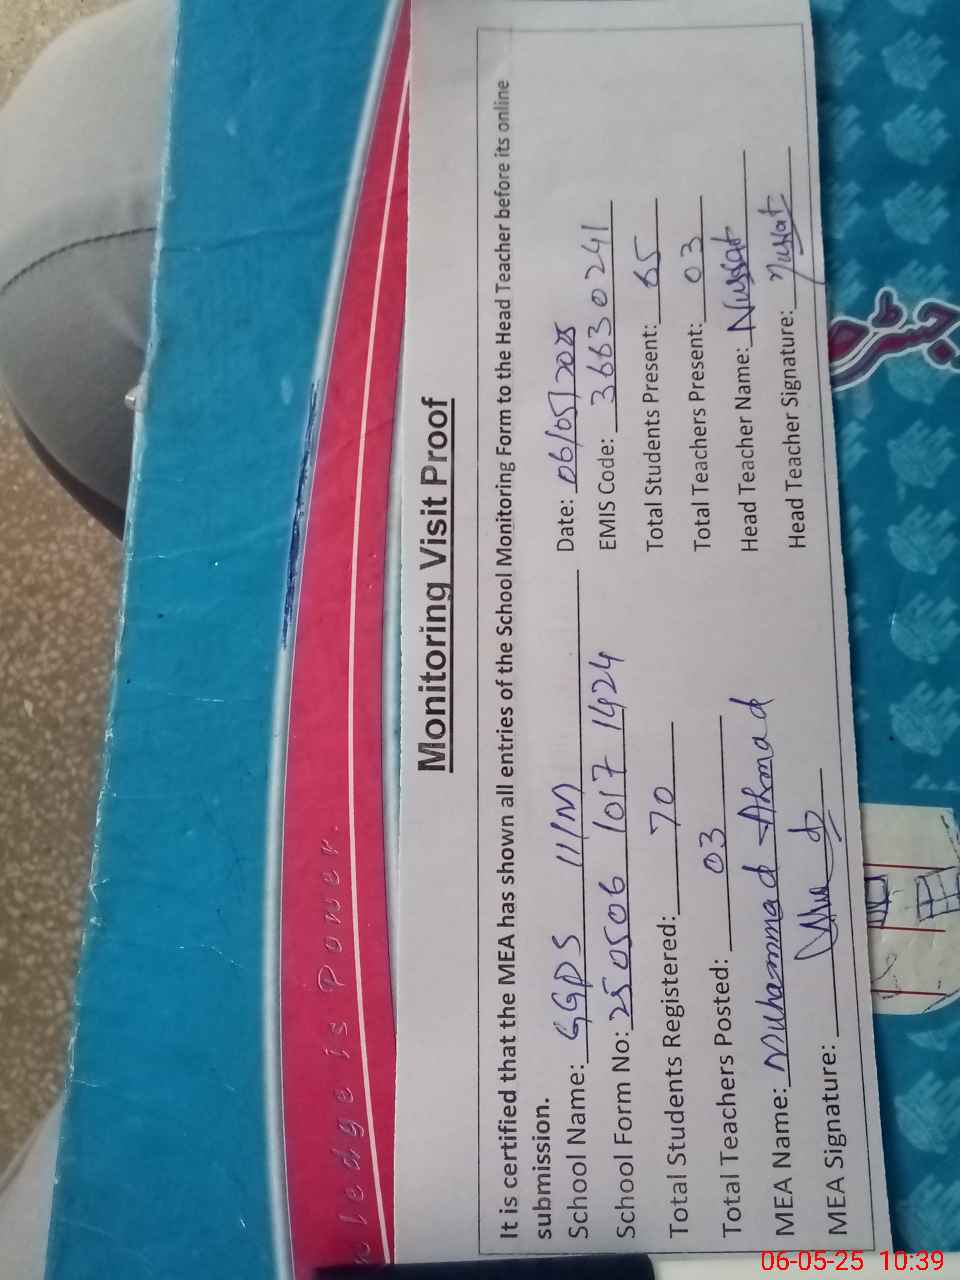 n ledge is Power.
Monitoring Visit Proof
It is certified that the MEA has shown all entries of the School Monitoring Form to the Head Teacher before its online
submission.
School Name: GGPS 11/M Date: 06/05/2025
School Form No: 250506 1017 1424 EMIS Code: 36630241
Total Students Registered: 70 Total Students Present: 65
Total Teachers Posted: 03 Total Teachers Present: 03
MEA Name: Muhammad Ahmad Head Teacher Name: Nussat
MEA Signature: Head Teacher Signature: Nussat
06-05-25 10:39